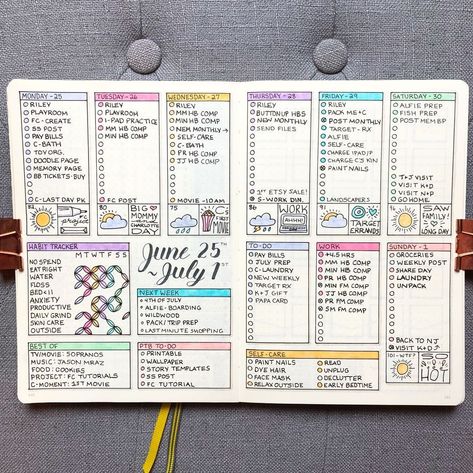 MONDAY-25
RILEY
PLAYROOM
FC-CREATE
SS POST
PAY BILLS
C-BATH
TOY ORG.
DOODLE PAGE
MEMORY PAGE
BB TICKETS-BUY
C-LAST DAY PK
TUESDAY-26
RILEY
PLAYROOM
I-PAD PRACTICE
MM HB COMP
MB HB COMP
FC POST
WEDNESDAY-27
RILEY
MM HB COMP
MB HB COMP
NEW MONTHLY
SELF-CARE
C-BATH
PR HB COMP
JJ HB COMP
MOVIE-10AM
THURSDAY-28
RILEY
BUTTONUP HBS
NEW MONTHLY
SEND FILES
1ST ETSY SALE!
S-WORK DIN.
FRIDAY-29
RILEY
PACK ME+C
POST MONTHLY
TARGET-RX
ALFIE
SELF-CARE
CHARGE IPAD/P
CHARGE C'S KIN
PAINT NAILS
LANDSCAPERS
SATURDAY-30
ALFIE PREP
FISH PREP
POST MEM BP
T+J VISIT
VISIT K+D
VISIT N+D
GO HOME
project
82
BIG
MOMMY
CHARLOTTE
DAY
75
C'S
FIRST
MOVIE
86
WORK
AHHH!
91
TARGET
ERRANDS
95
SAW
FAMILY!
LONG DAY
HABIT TRACKER
M T W T F S S
NO SPEND
EAT RIGHT
WATER
FLOSS
BED<11
ANXIETY
PRODUCTIVE
DAILY GRIND
SKIN CARE
OUTSIDE
June 25TH
~July 1ST
NEXT WEEK
4TH OF JULY
ALFIE-BOARDING
WILDWOOD
PACK/TRIP PREP
LAST MINUTE SHOPPING
TO-DO
PAY BILLS
JULY PREP
C-LAUNDRY
NEW WEEKLY
TARGET
K+J GIFT
PAPA CARD
WORK
+4.5 HRS
MM HB COMP
MIN HB COMP
PR HB COMP
MM FM COMP
JJ HB COMP
PR FM COMP
SM FM COMP
SUNDAY-1
GROCERIES
WEEKLY POST
SHARE DAY
LAUNDRY
UNPACK
BACK TO NJ
VISIT K+D+J
BEST OF
TV/MOVIE: SOPRANOS
MUSIC: JASON MRAZ
FOOD: COOKIES
PROJECT: FC TUTORIALS
C-MOMENT: 1ST MOVIE
PTB TO-DO
PRINTABLE
WALLPAPER
STORY TEMPLATES
SS POST
FC TUTORIAL
SELF-CARE
PAINT NAILS
DYE HAIR
FACE MASK
RELAX OUTSIDE
READ
UNPLUG
DECLUTTER
EARLY BEDTIME
101-WTF?
SO
HOT